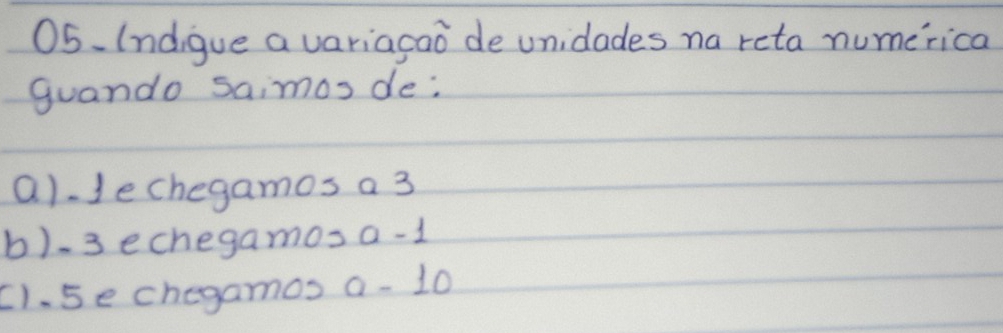 05-Indique a variação de unidades na reta numérica
quando saimos de:
a)-1 e chegamos a 3
b)-3 e chegamos a -1
c)-5 e chegamos a -10